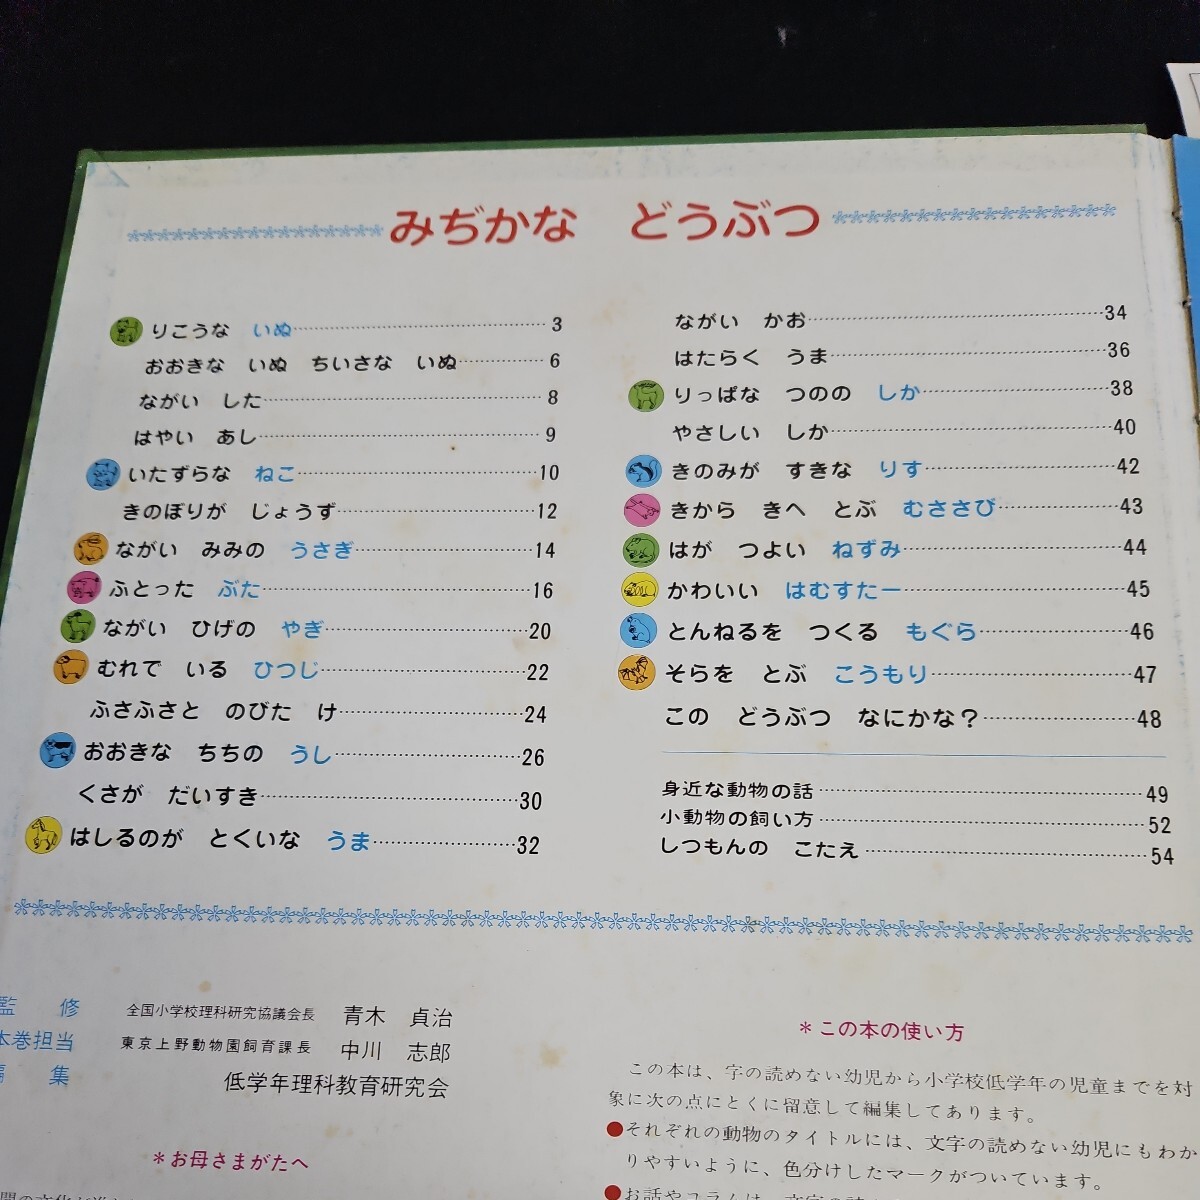 みぢかな どうぶつ
りこうな いぬ 3
おおきな いぬ ちいさな いぬ 6
ながい した 8
はやい あし 9
いたずらな ねこ 10
きのぼりが じょうず 12
ながい みみの うさぎ 14
ふとった ぶた 16
ながい ひげの やぎ 20
むれで いる ひつじ 22
ふさふさと のびた け 24
おおきな ちちの うし 26
くさが だいすき 30
はしるのが とくいな うま 32
ながい かお 34
はたらく うま 36
りっぱな つのの しか 38
やさしい しか 40
きのみが すきな りす 42
きから きへ とぶ むささび 43
はが つよい ねずみ 44
かわいい はむすたー 45
とんねるを つくる もぐら 46
そらを とぶ こうもり 47
この どうぶつ なにかな？ 48
身近な動物の話 49
小動物の飼い方 52
しつもんの こたえ 54
監修 全国小学校理科研究協議会長 青木 貞治
本巻担当 東京上野動物園飼育課長 中川 志郎
編集 低学年理科教育研究会
＊お母さまがたへ
＊この本の使い方
この本は、字の読めない幼児から小学校低学年の児童までを対
象に次の点にとくに留意して編集してあります。
●それぞれの動物のタイトルには、文字の読めない幼児にもわか
りやすいように、色分けしたマークがついています。